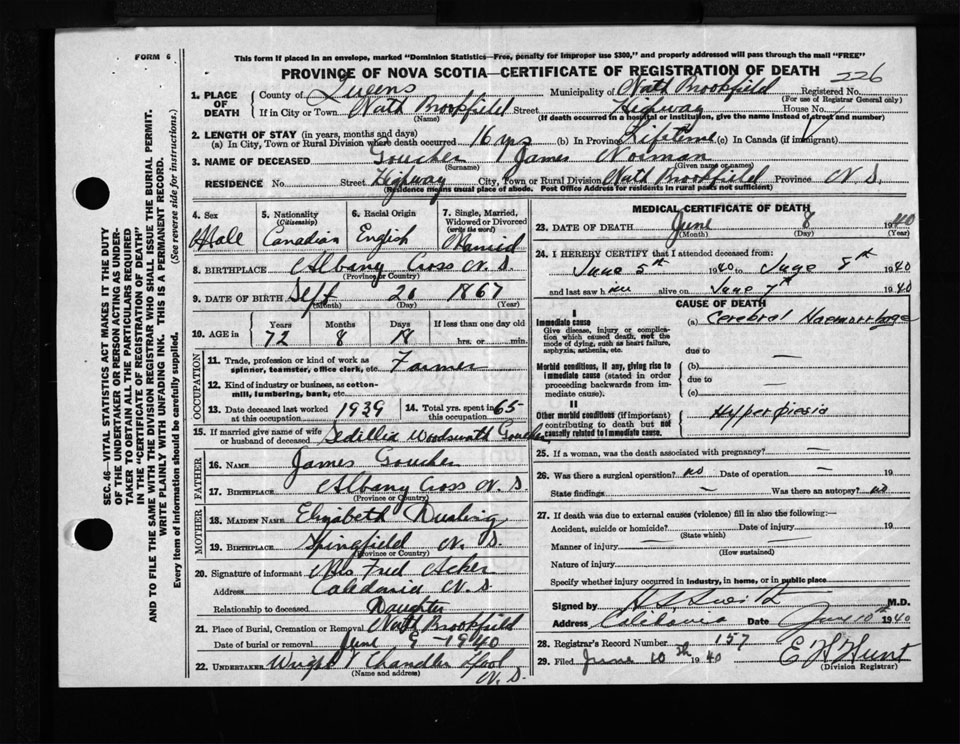 FORM 6
This form if placed in an envelope, marked "Dominion Statistics—Free, penalty for improper use $300," and properly addressed will pass through the mail "FREE"
PROVINCE OF NOVA SCOTIA—CERTIFICATE OF REGISTRATION OF DEATH
226
1. PLACE OF DEATH County of Queens Municipality of North Brookfield Registered No.
(For use of Registrar General only)
If in City or Town North Brookfield Street Highway House No.
(Name) (If death occurred in a hospital or institution, give the name instead of street and number)
2. LENGTH OF STAY (in years, months and days)
(a) In City, Town or Rural Division where death occurred 16 yrs (b) In Province Lifetime (c) In Canada (if immigrant)
3. NAME OF DECEASED Goucher James Norman
(Surname) (Given name or names)
RESIDENCE No. Street Highway City, Town or Rural Division North Brookfield Province N.S.
(Residence means usual place of abode. Post Office Address for residents in rural parts not sufficient)
4. Sex 5. Nationality (Citizenship) 6. Racial Origin 7. Single, Married, Widowed or Divorced (write the word)
Male Canadian English Married
8. BIRTHPLACE Albany Cross N.S.
(Province or Country)
9. DATE OF BIRTH Sept 20 1867
(Month) (Day) (Year)
10. AGE in Years Months Days If less than one day old
72 8 18 hrs. or min.
OCCUPATION
11. Trade, profession or kind of work as spinner, teamster, office clerk, etc. Farmer
12. Kind of industry or business, as cotton-mill, lumbering, bank, etc.
13. Date deceased last worked at this occupation 1939 14. Total yrs. spent in this occupation 65
15. If married give name of wife or husband of deceased Sedillia Woodsworth Goucher
FATHER
16. NAME James Goucher
17. BIRTHPLACE Albany Cross N.S.
(Province or Country)
MOTHER
18. MAIDEN NAME Elizabeth Dusling
19. BIRTHPLACE Springfield N.S.
(Province or Country)
20. Signature of informant Mrs Fred Acker
Address Caledonia N.S
Relationship to deceased Daughter
21. Place of Burial, Cremation or Removal North Brookfield
Date of burial or removal June 9 - 1940
22. UNDERTAKER Wright Chandler Lpool
(Name and address) N.S.
MEDICAL CERTIFICATE OF DEATH
23. DATE OF DEATH June 8 1940
(Month) (Day) (Year)
24. I HEREBY CERTIFY that I attended deceased from:
June 5th 1940 to June 8th 1940
and last saw him alive on June 7th 1940
CAUSE OF DEATH
I
Immediate cause (a) Cerebral Haemorrhage
Give disease, injury or complication which caused death, not the mode of dying, such as heart failure, asphyxia, asthenia, etc.
due to —
Morbid conditions, if any, giving rise to immediate cause (stated in order proceeding backwards from immediate cause).
(b)
due to —
(c)
II
Other morbid conditions (if important) contributing to death but not causally related to immediate cause.
Hyperpiesia
—
25. If a woman, was the death associated with pregnancy? —
26. Was there a surgical operation? no Date of operation — 19
State findings — Was there an autopsy? no
27. If death was due to external causes (violence) fill in also the following:—
Accident, suicide or homicide? — Date of injury — 19
(State which)
Manner of injury —
(How sustained)
Nature of injury —
Specify whether injury occurred in industry, in home, or in public place
Signed by M.D.
Address Caledonia Date June 10th 1940
28. Registrar's Record Number 157
29. Filed June 10th 1940 E H Hunt
(Division Registrar)
SEC. 46—VITAL STATISTICS ACT MAKES IT THE DUTY
OF THE UNDERTAKER OR PERSON ACTING AS UNDER-
TAKER TO OBTAIN ALL THE PARTICULARS REQUIRED
IN THE "CERTIFICATE OF REGISTRATION OF DEATH"
AND TO FILE THE SAME WITH THE DIVISION REGISTRAR WHO SHALL ISSUE THE BURIAL PERMIT.
WRITE PLAINLY WITH UNFADING INK. THIS IS A PERMANENT RECORD.
Every item of information should be carefully supplied. (See reverse side for instructions.)